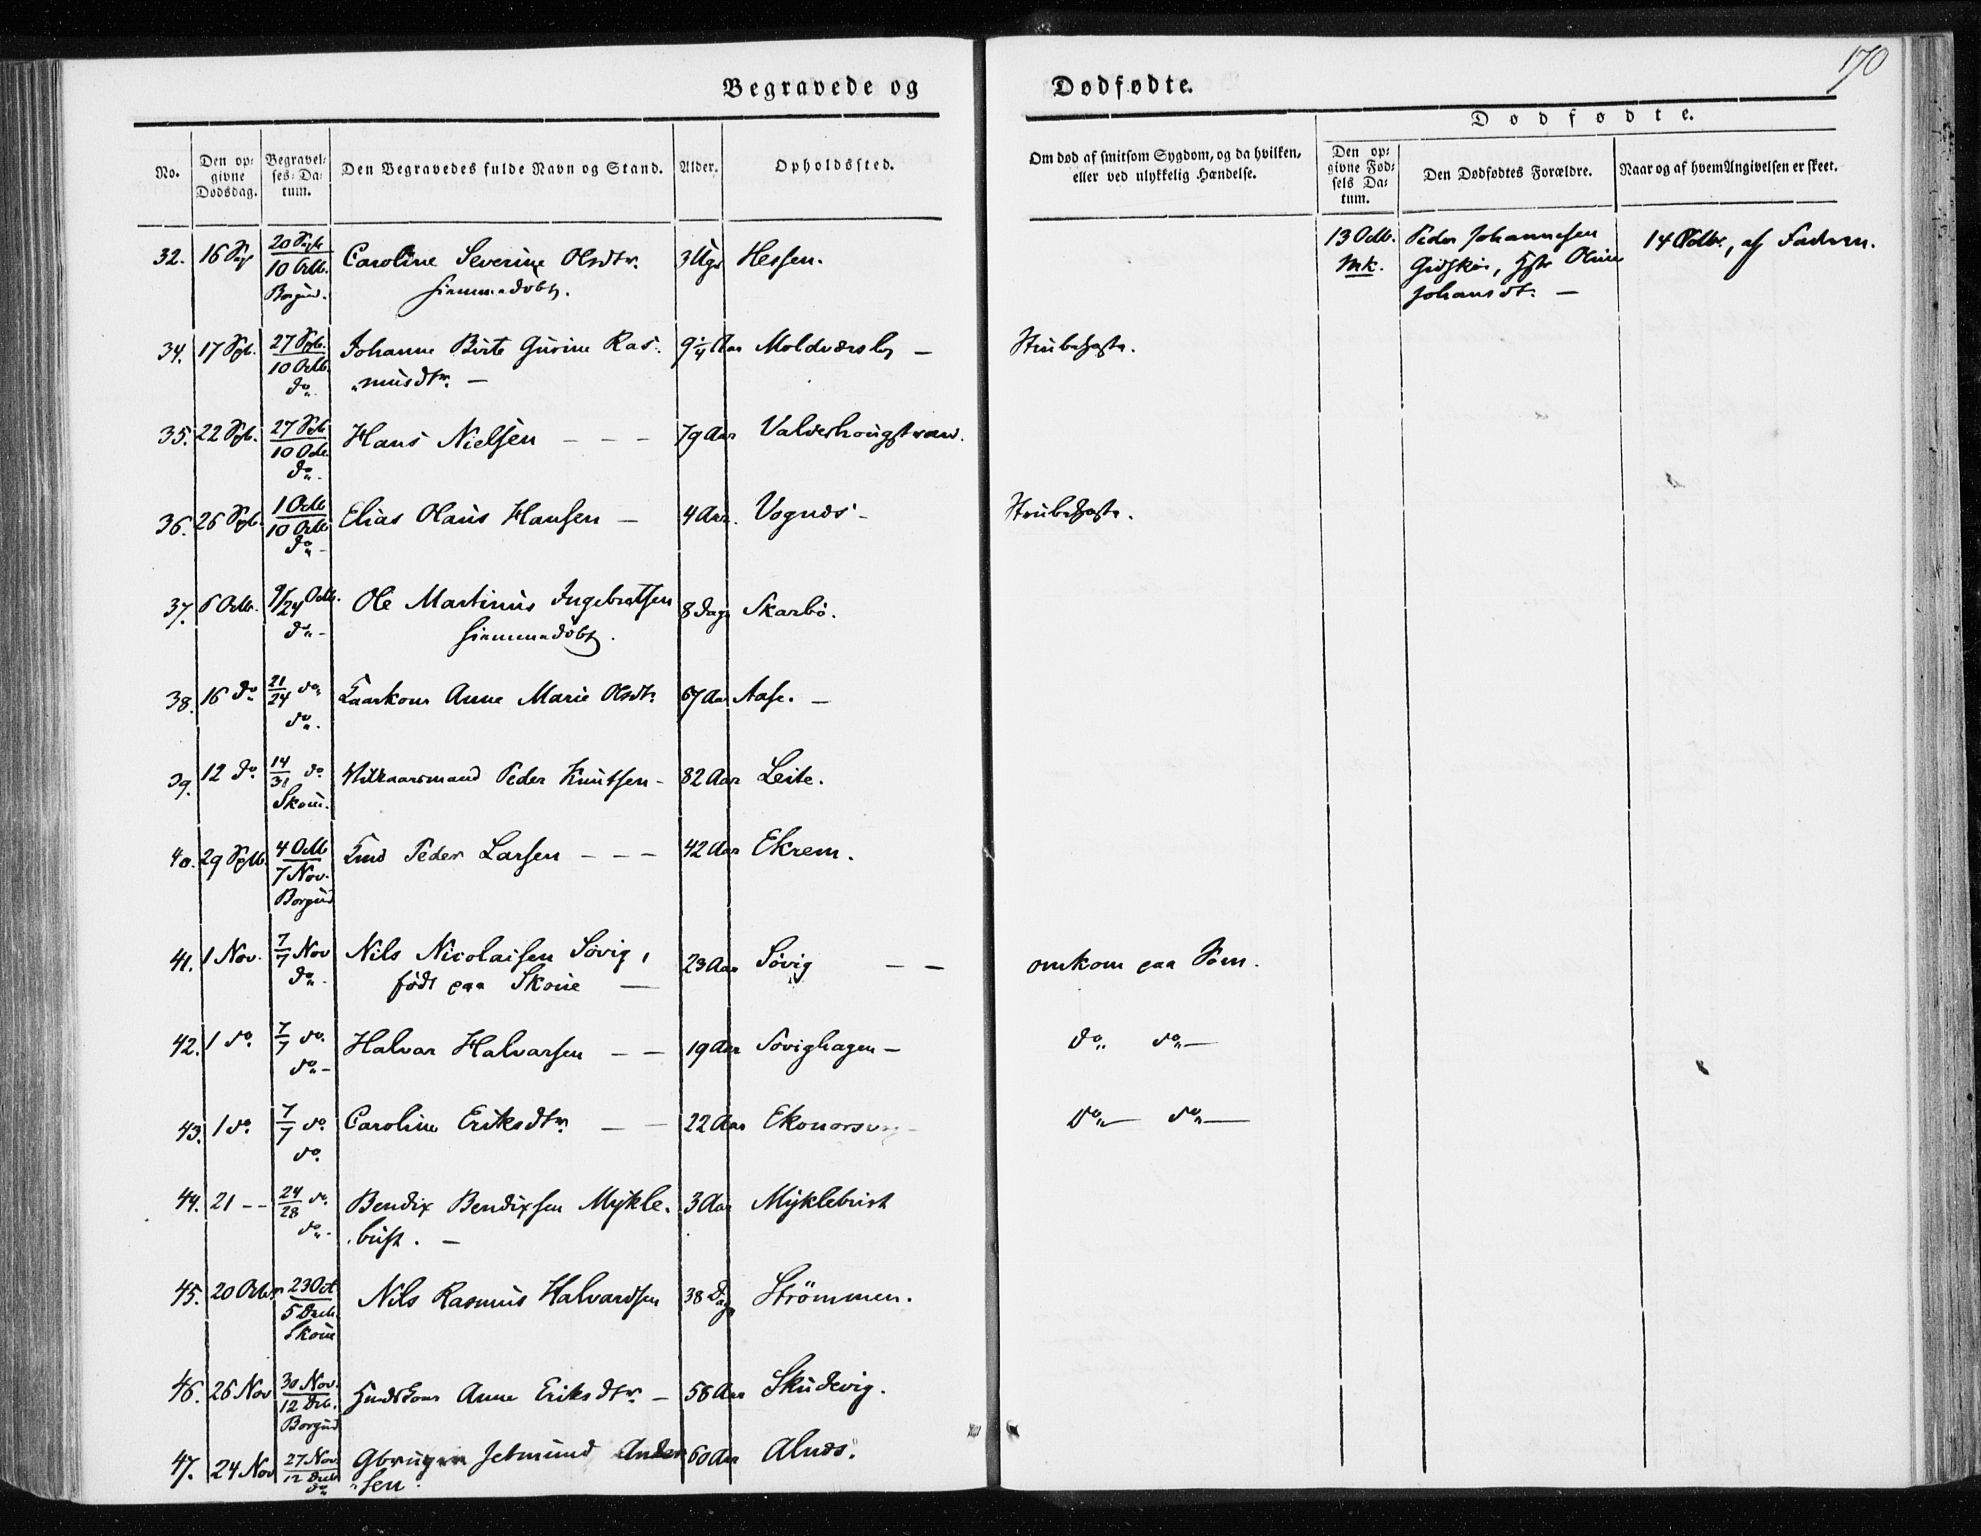 170
Begravede og Dødfødte.
Dødfødte.
No.
Den op-
givne
Dødsdag.
Begravel-
ses-Da-
tum.
Den Begravedes fulde Navn og Stand.
Alder.
Opholdssted.
Om død af smitsom Sygdom, og da hvilken,
eller ved ulykkelig Hændelse.
Den op-
givne Fød-
sels Da-
tum.
Den Dødfødtes Forældre.
Naar og af hvem Angivelsen er skeet.
32. 16 20 10 Octb. Caroline Severine Olsdtr. 3 Ugr Hessen. 13 Octb. Peder Johannesen 14 Octbr., af Faderen.
Borgund. hiemmedøbt. Mk. Johansdt. —
34. 17 Sptb. 27 Sptb. 10 Octb. Johanne Birte Gurine Ras- 9 1/4 Aar Moldværsby — Strubehoste.
do musdtr. —
35. 22 Sptb. 27 Sptb. 10 Octb. Hans Nielsen — — — 79 Aar Valderhougstrand.
do
36. 26 Sptb. 1 Octb 10 Octb Elias Olaus Hansen — 4 Aar. Vognæs - Strubehoste.
do -
37. 6 Octb. 9/24 Octb. Ole Martinus Ingebretsen 8 Dage Skarbö.
do - hiemmedøbt.
38. 16 do 21/24 do Anne Marie Olsdtr. 67 Aar Aase. —
do.
39. 12 do 14/31 do Vilkaarsmand Peder Knutsen - 82 Aar Leite.
Skoue.
40. 29 Septb. 4 Octb 7 Nov. Peder Larsen — — — 42 Aar Ekrem.
Borgund
41. 1 Nov. 7/7 Nov Nils Nicolaisen Sövig, 23 Aar Sövig — — omkom paa Søen.
do - födt paa Skoue —
42. 1 do. 7/7 do. Halvar Halvarsen — — 19 Aar Sövighagen — do do —
do -
43. 1 do. 7/7 do. Caroline Eriksdtr. — — 22 Aar do — do —
do.
44. 21 - - 24/28 do. Bendix Bendixsen Mykle- 3 Aar Myklebust
do - bust. —
45. 20 Octbr 23 Oct 5 Decb. Nils Rasmus Halvardsen 38 Dage Strömmen.
Skoue
46. 26 Nov 30 Nov. 12 Decb. Anne Eriksdtr. — 58 Aar Skudevig.
Borgund
47. 24 Nov 27 Nov. 12 Decb Gbruger Jetmund Ander- 60 Aar Alnæs.
do sen